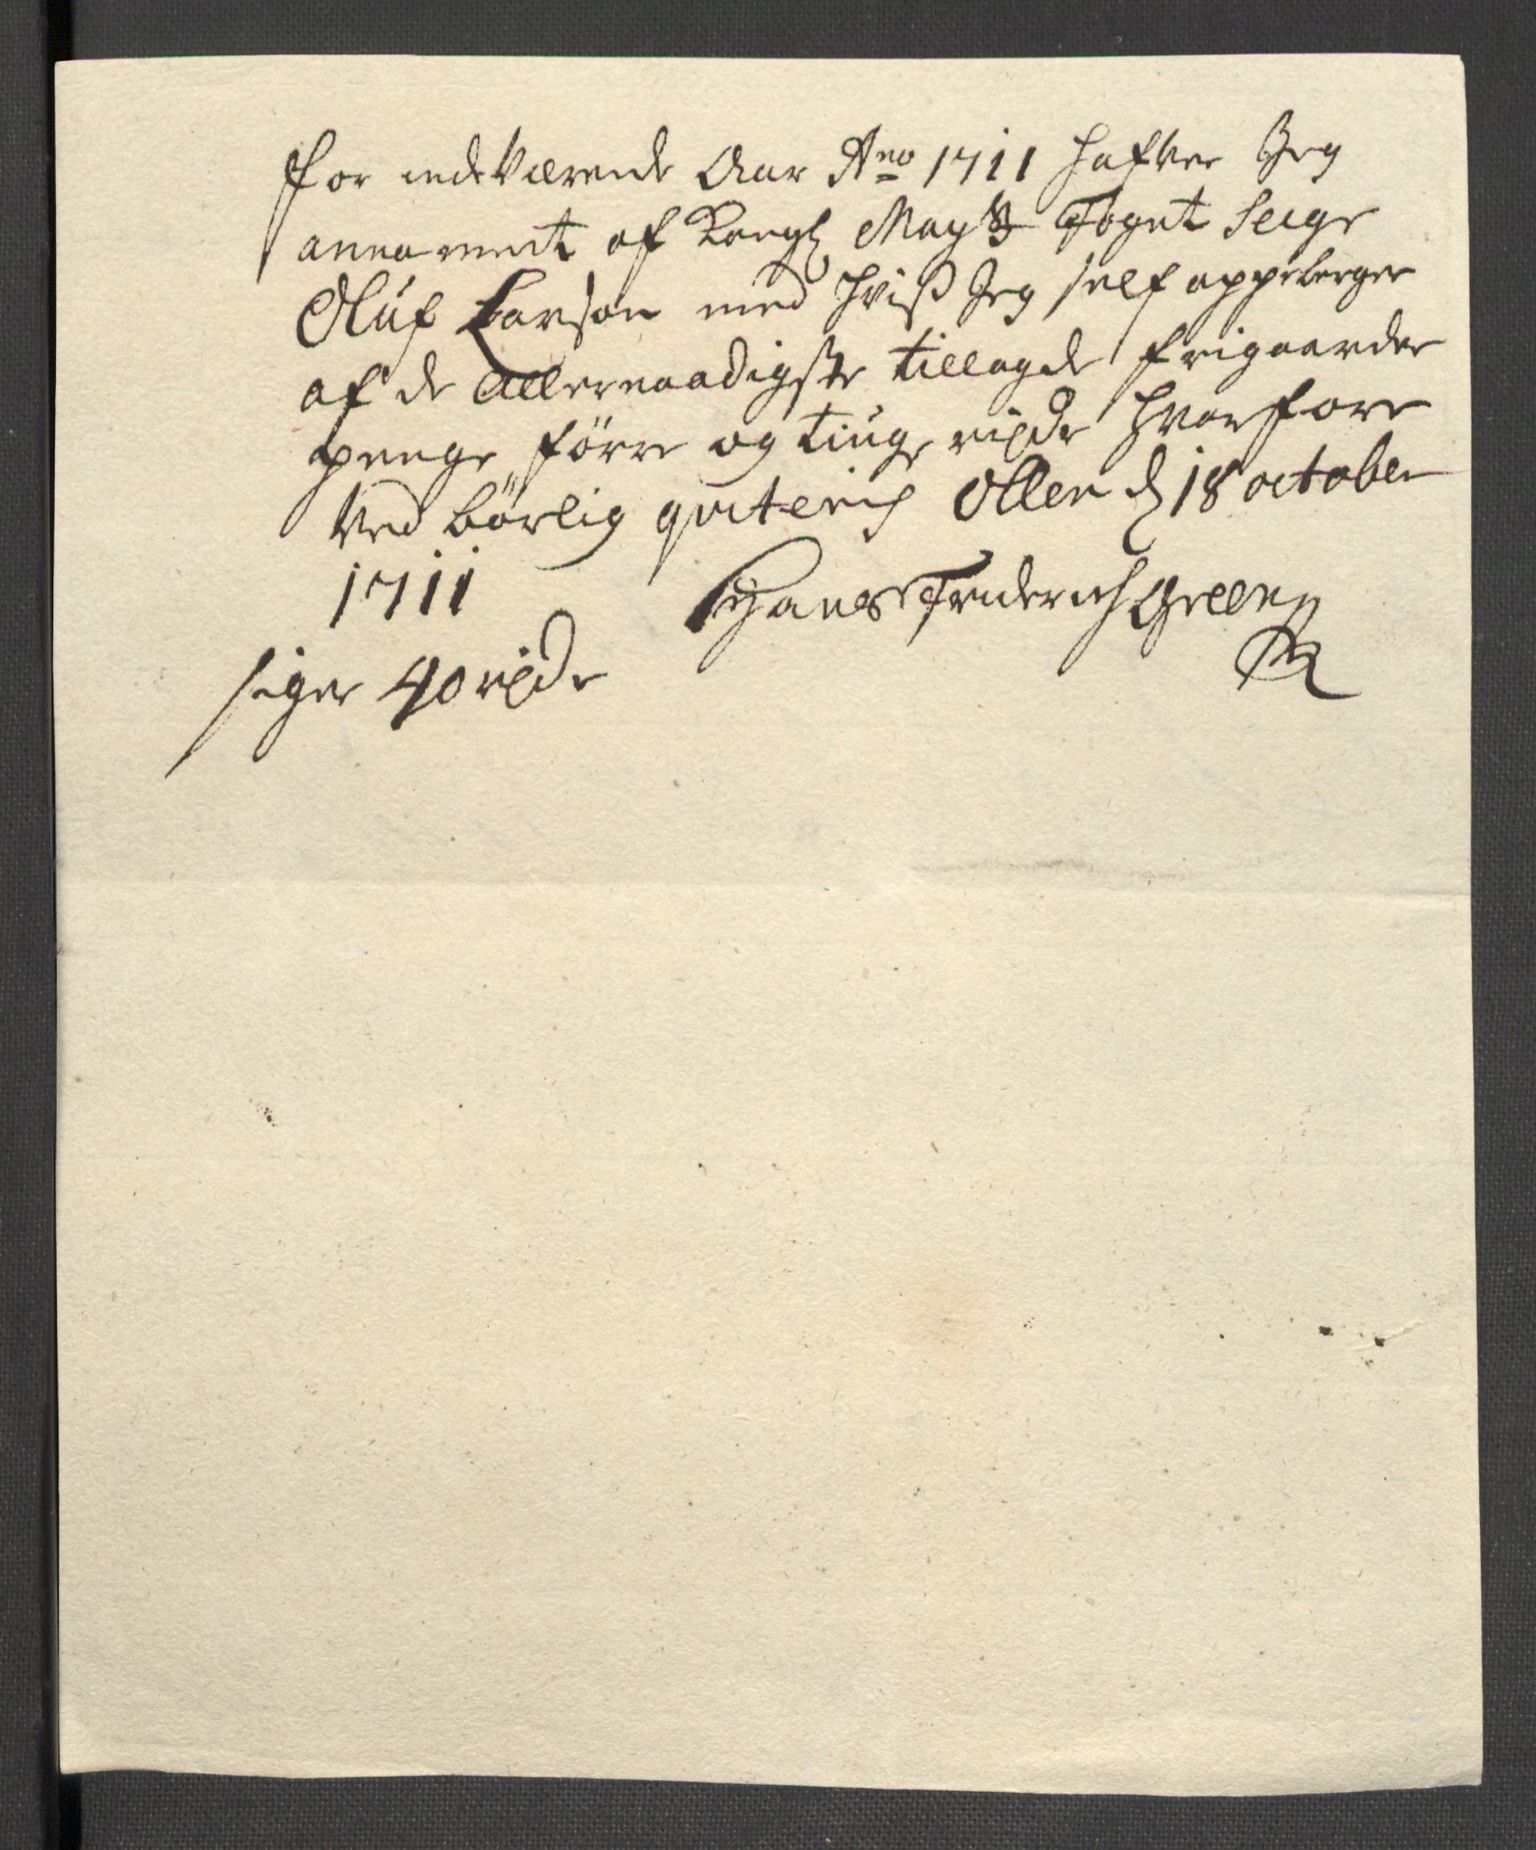 for indeVærende Aar Ano 1711 hafver Jeg
annammit af Kongl Mayts Fogut Seigr
Oluf Larson med hviß Jeg self oppeberger
af de Allernaadigste tillagde frigaarder
penge förre og tiuge rixdr hvorfore
Ved börlig qviteris Ollen d 18 october
1711 Hans Friderich Green
siger 40 rixdr